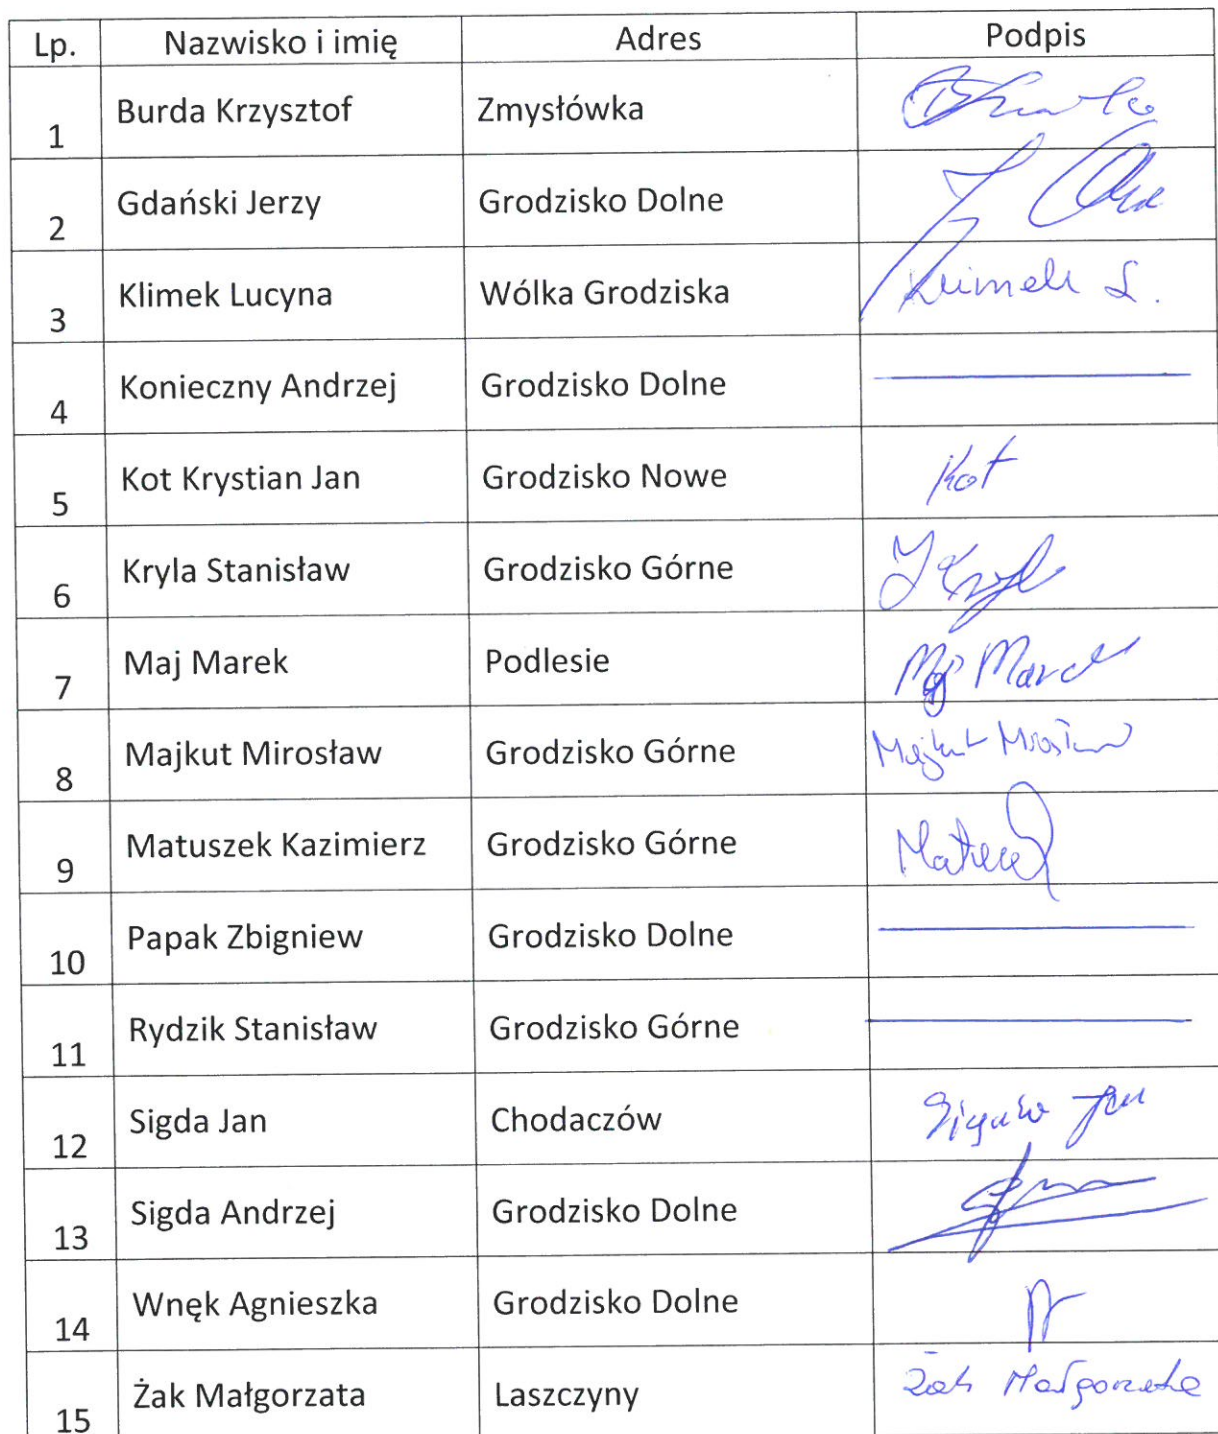 Lp. Nazwisko i imię Adres Podpis
1 Burda Krzysztof Zmysłówka
2 Gdański Jerzy Grodzisko Dolne
3 Klimek Lucyna Wólka Grodziska Klimek L.
4 Konieczny Andrzej Grodzisko Dolne
5 Kot Krystian Jan Grodzisko Nowe Kot
6 Kryla Stanisław Grodzisko Górne
7 Maj Marek Podlesie Maj Marek
8 Majkut Mirosław Grodzisko Górne Majkut Mirosław
9 Matuszek Kazimierz Grodzisko Górne
10 Papak Zbigniew Grodzisko Dolne
11 Rydzik Stanisław Grodzisko Górne
12 Sigda Jan Chodaczów Sigda Jan
13 Sigda Andrzej Grodzisko Dolne
14 Wnęk Agnieszka Grodzisko Dolne
15 Żak Małgorzata Laszczyny Żak Małgorzata